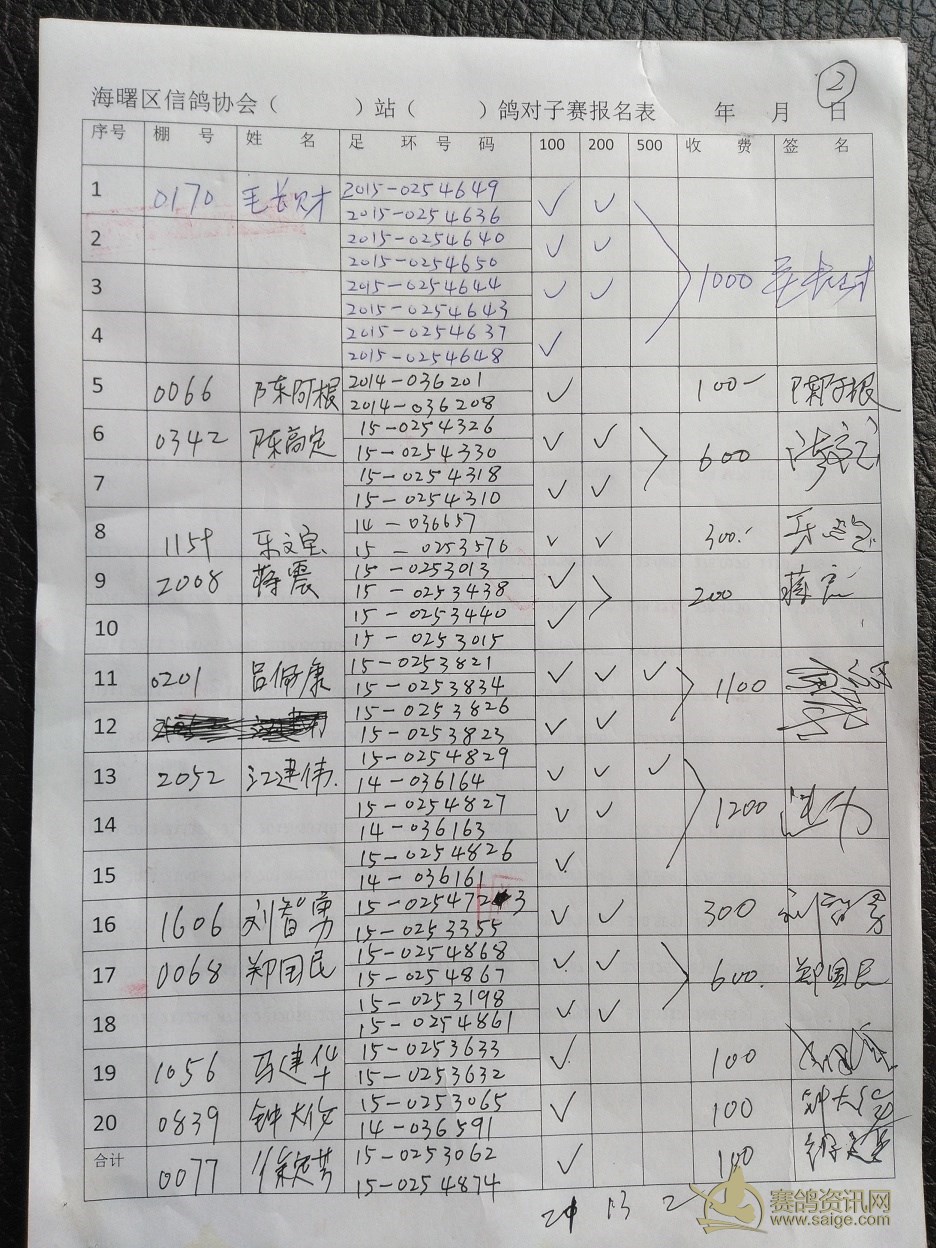 2
海曙区信鸽协会（ ）站（ ）鸽对子赛报名表 年 月 日
序号 棚 号 姓 名 足 环 号 码 100 200 500 收 费 签 名
1 0170 毛长财 2015-0254649 ✓ ✓
2015-0254636
2 2015-0254640 ✓ ✓
2015-0254650
3 2015-0254644 ✓ ✓ 1000 毛长财
2015-0254643
4 2015-0254637 ✓
2015-0254648
5 0066 陈阿根 2014-036201 ✓ 100- 陈阿根
2014-036208
6 0342 陈高定 15-0254326 ✓ ✓ 600
15-0254330
7 15-0254318 ✓ ✓
15-0254310
8 1159 乐文宝 14-036657 ✓ ✓ 300.-
15-0253576
9 2008 蒋震 15-0253013 ✓ 200 蒋震
15-0253438
10 15-0253440 ✓
15-0253015
11 0201 吕佩康 15-0253821 ✓ ✓ ✓ 1100
15-0253834
12 15-0253826 ✓ ✓
15-0253823
13 2052 江建伟 15-0254829 ✓ ✓ ✓
14-036164
14 15-0254827 ✓ ✓ 1200
14-036163
15 15-0254826 ✓
14-036161
16 1606 刘智勇 15-0254723 ✓ ✓ 300 刘智勇
15-0253355
17 0068 郑国民 15-0254868 ✓ ✓ 600. 郑国民
15-0254867
18 15-0253198 ✓ ✓
15-0254861
19 1056 马建华 15-0253633 ✓ 100
15-0253632
20 0839 钟大仪 15-0253065 ✓ 100
14-036591
合计 0077 15-0253062 ✓ 100
15-0254874
13 2
赛鸽资讯网
www.saige.com